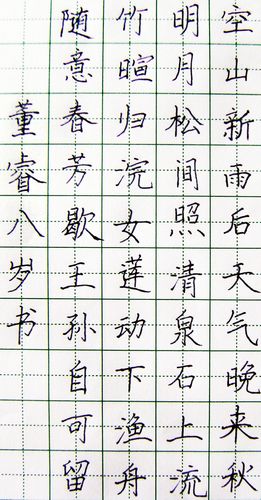 空山新雨后天气晚来秋
明月松间照清泉石上流
竹暄归浣女莲动下渔舟
随意春芳歇王孙自可留
董睿八岁书